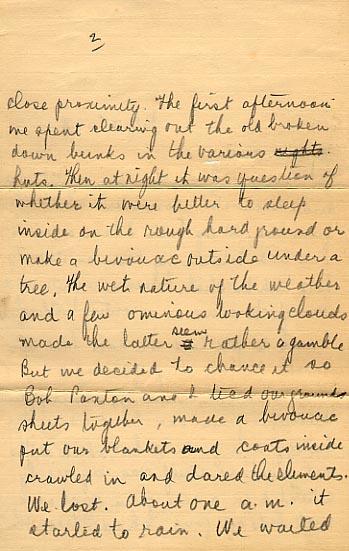 2
close proximity. The first afternoon
we spent clearing out the old broken
down bunks in the various ~~nights~~.
huts. Then at night it was question of
whether it were better to sleep
inside on the rough hard ground or
make a bivouac outside under a
tree. The wet nature of the weather
and a few ominous looking clouds
made the latter seem rather a gamble
But we decided to chance it so
Bob Paxton and I tied our ground
sheets together, made a bivouac
put our blankets and coats inside
crawled in and dared the elements.
We lost. About one a.m. it
started to rain. We waited